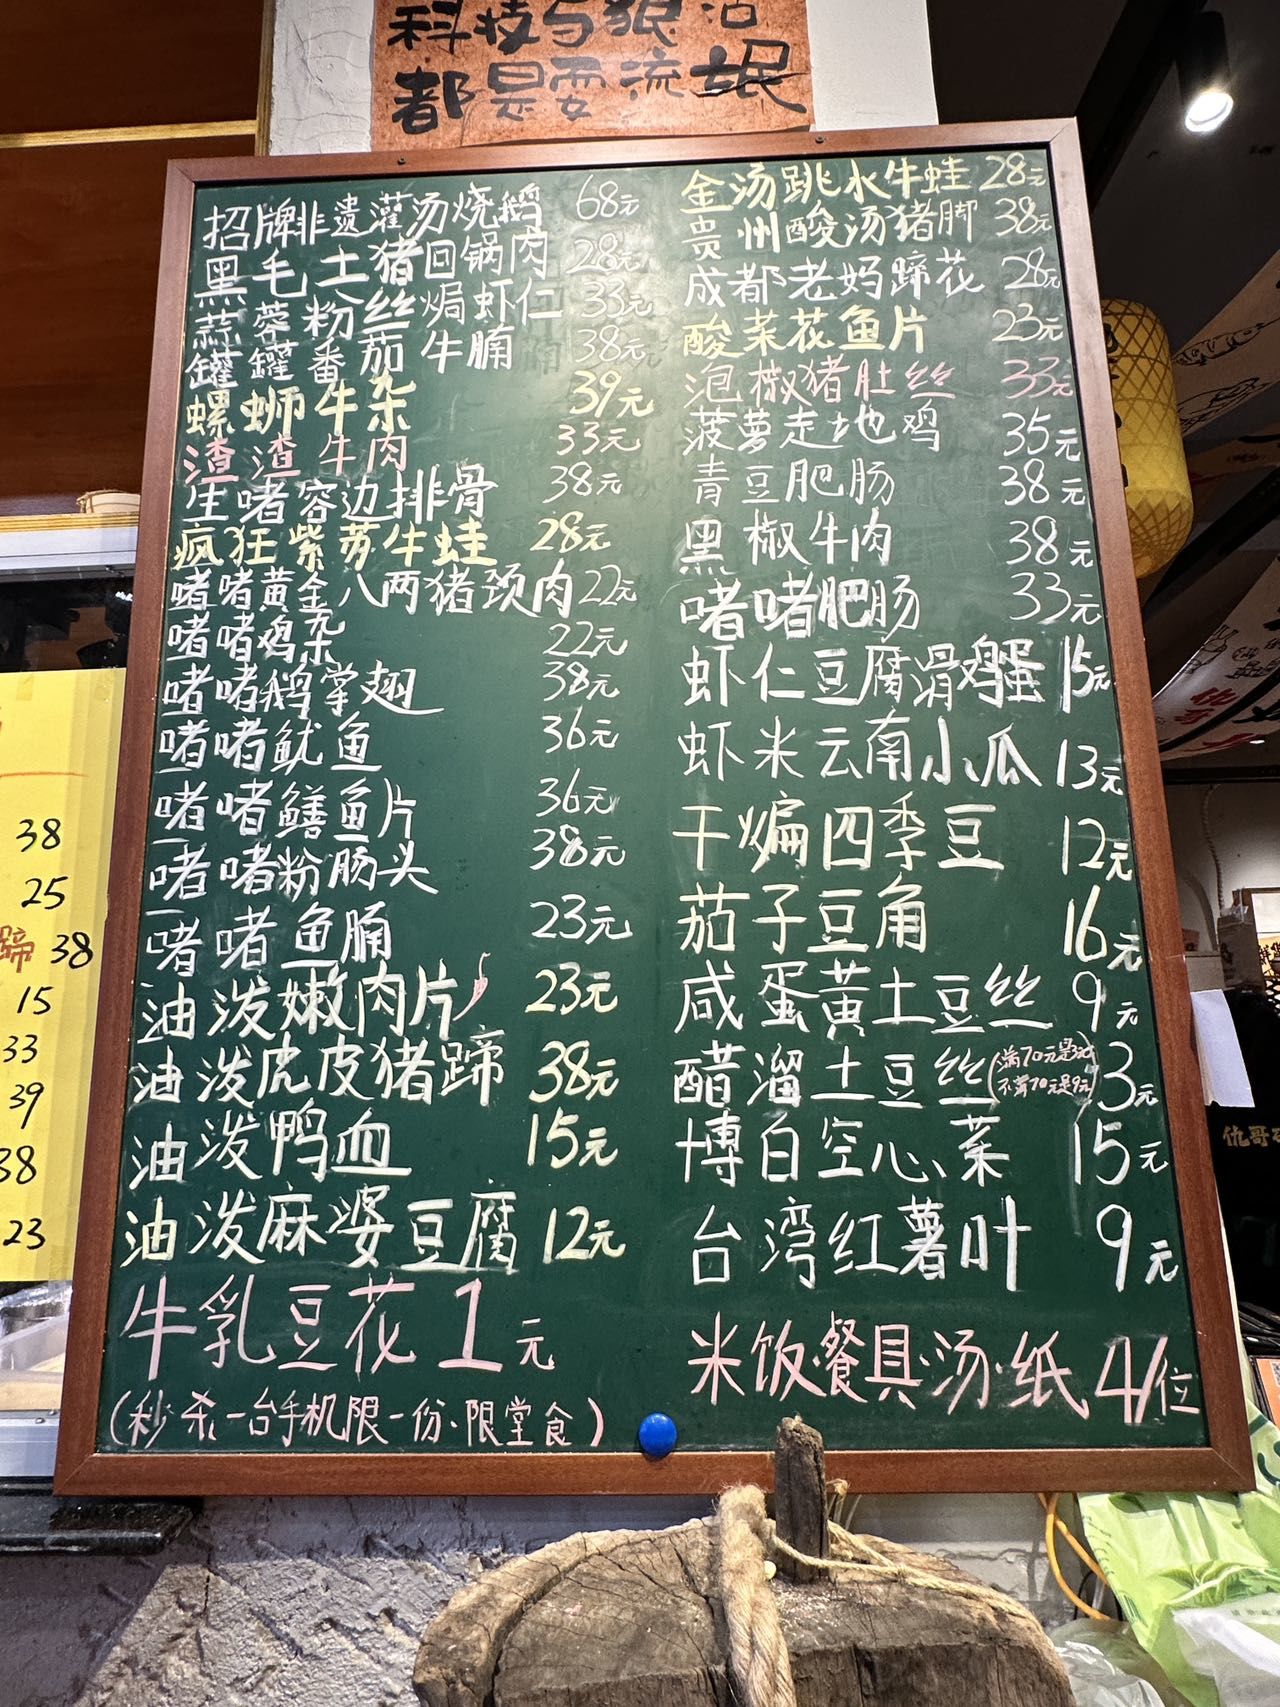 科技与狠活
都是耍流氓
招牌非遗灌汤烧鹅 68元
黑毛土猪回锅肉 28元
蒜蓉粉丝焗虾仁 33元
罐罐番茄牛腩 38元
螺蛳牛杂 39元
渣渣牛肉 33元
生啫容边排骨 38元
疯狂紫苏牛蛙 28元
啫啫黄金八两猪颈肉 22元
啫啫鸡杂 22元
啫啫鹅掌翅 38元
啫啫鱿鱼 36元
啫啫鳝鱼片 36元
啫啫粉肠头 38元
啫啫鱼腩 23元
油泼嫩肉片 23元
油泼虎皮猪蹄 38元
油泼鸭血 15元
油泼麻婆豆腐 12元
牛乳豆花 1元
(秒杀一台手机限一份·限堂食)
金汤跳水牛蛙 28元
贵州酸汤猪脚 38元
成都老妈蹄花 28元
酸菜花鱼片 23元
泡椒猪肚丝 33元
菠萝走地鸡 35元
青豆肥肠 38元
黑椒牛肉 38元
啫啫肥肠 33元
虾仁豆腐滑鸡蛋 15元
虾米云南小瓜 13元
干煸四季豆 12元
茄子豆角 16元
咸蛋黄土豆丝 9元
醋溜土豆丝(满70元是3元 不满70元是9元) 3元
博白空心菜 15元
台湾红薯叶 9元
米饭·餐具·汤·纸 4/位
38
25
蹄 38
15
33
39
38
23
仇哥